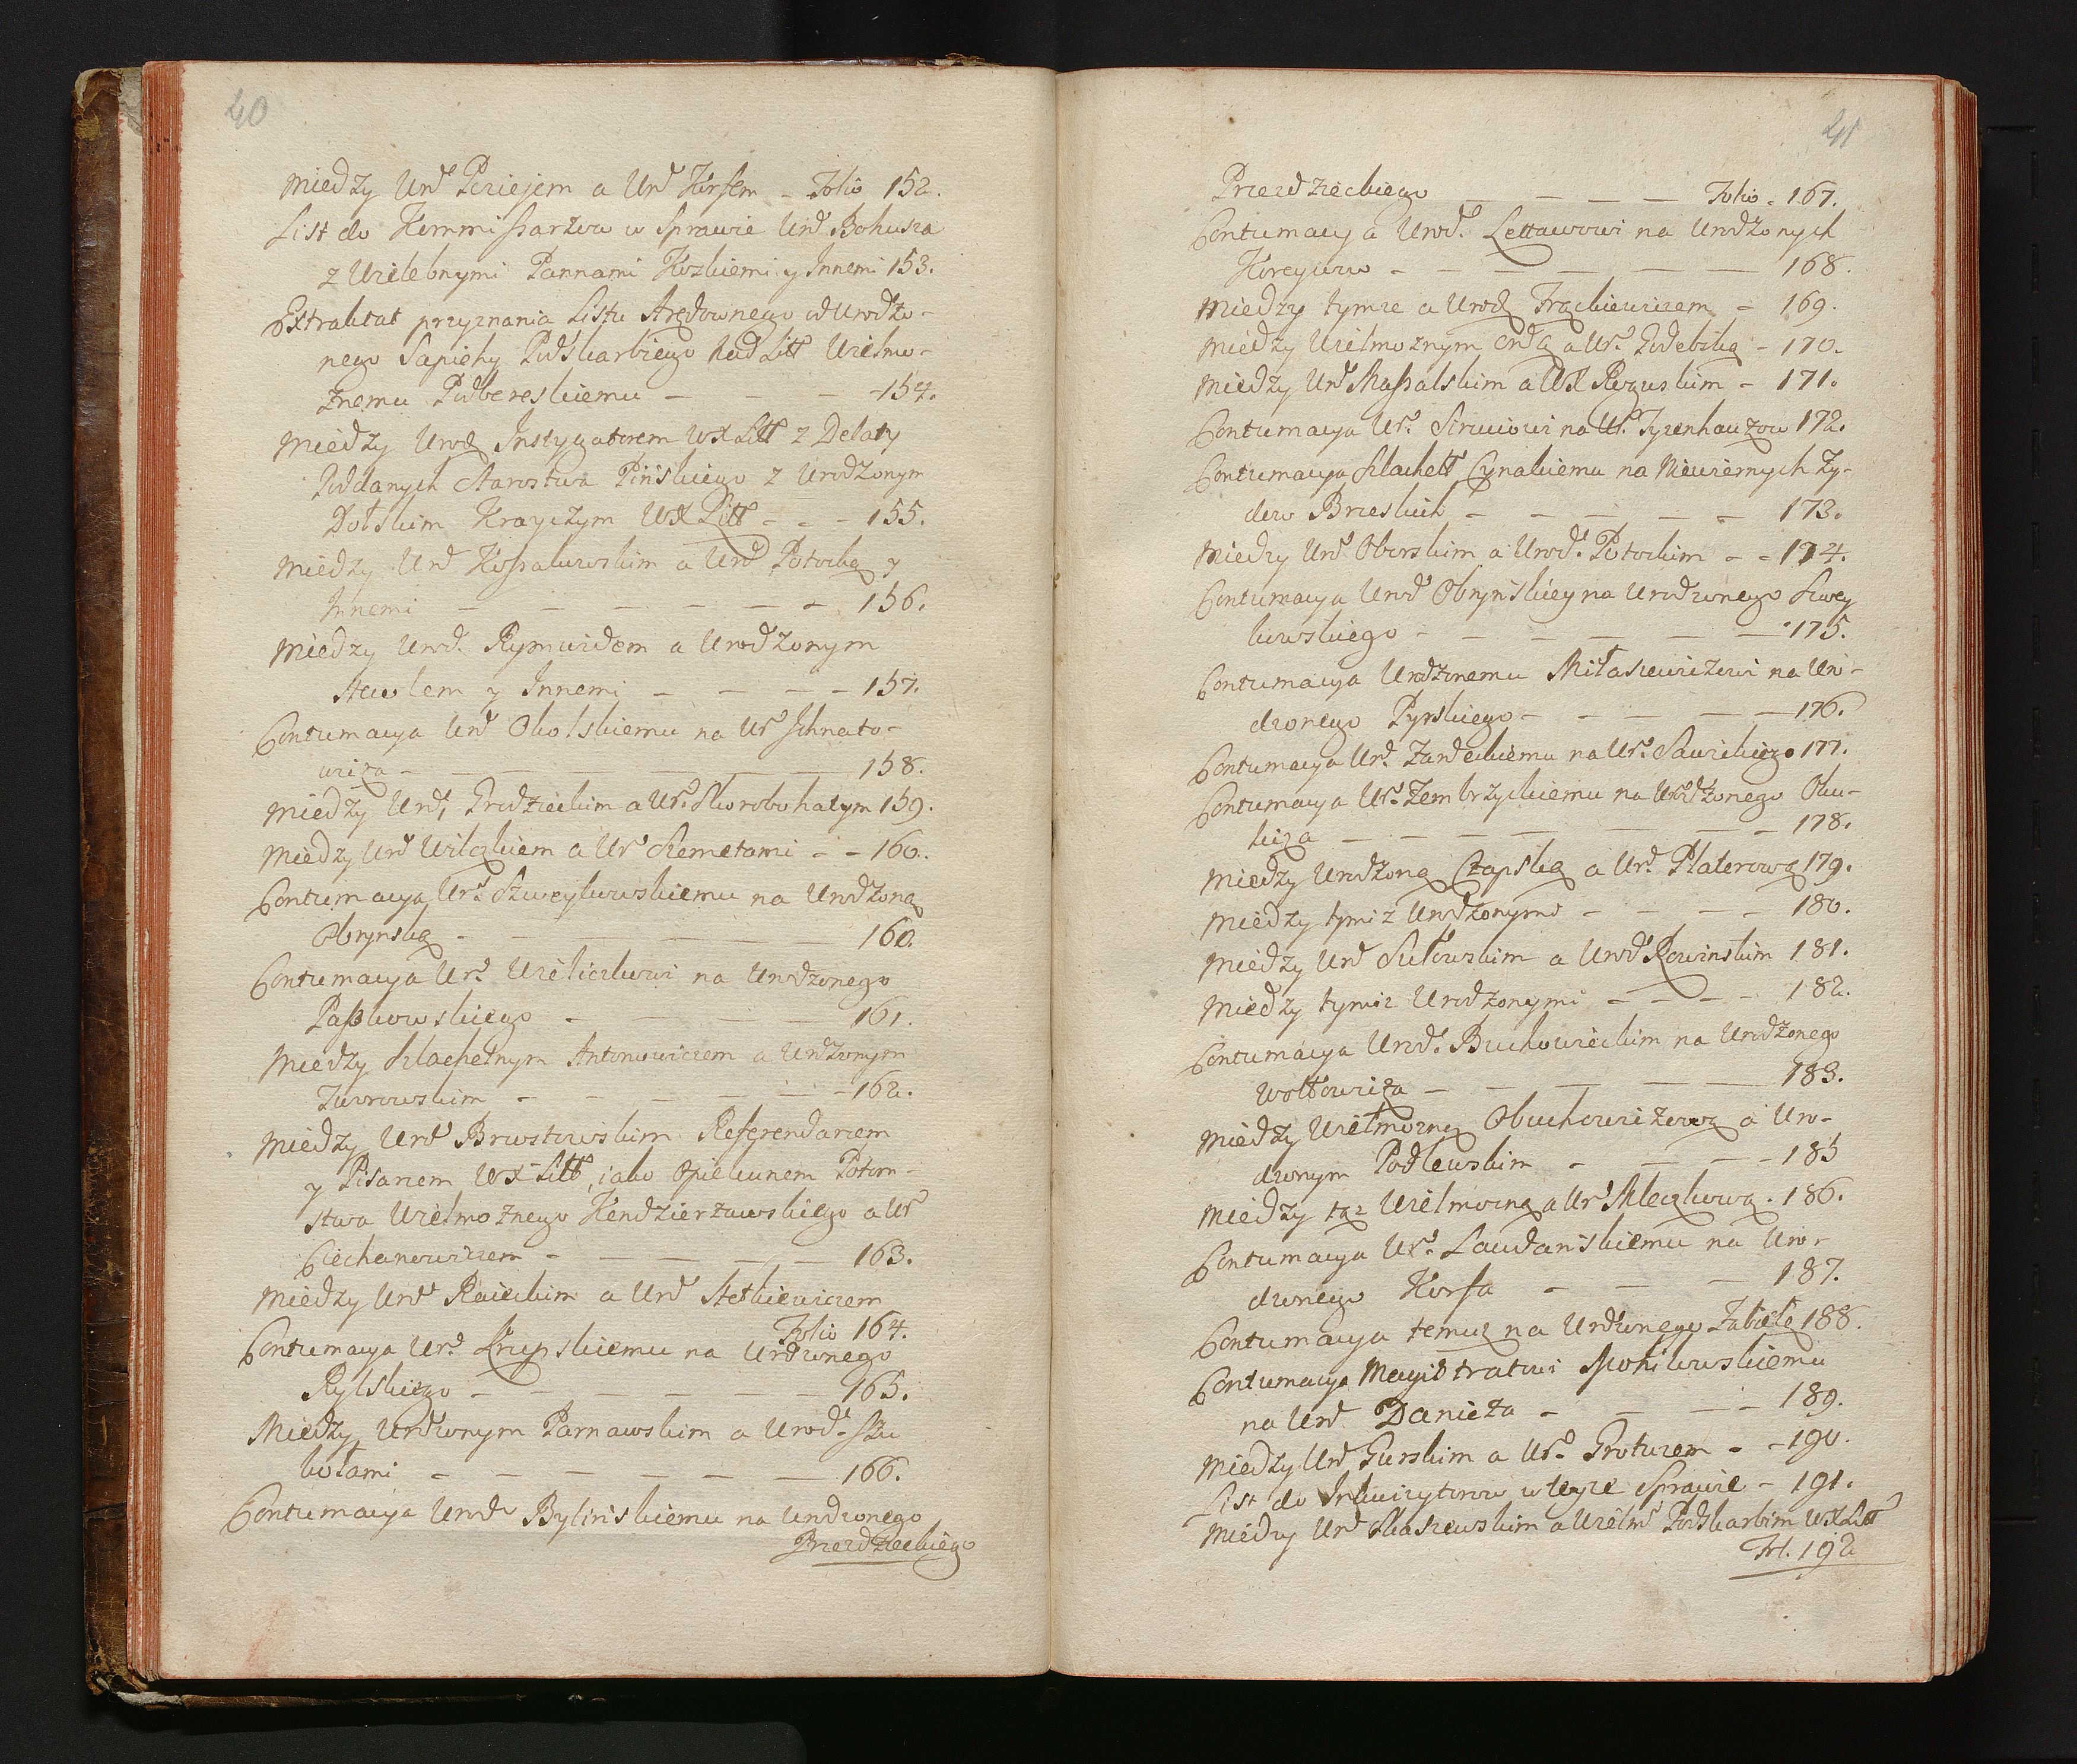 40
Między Urd Pociejem a Urd Korfem - Folio 152.
List do Kommissarzow w Sprawie Urd Bohusza
z Wielebnymi Pannami Kozkiemi y Innemi 153.
Extraktat przyznania Listu Arędownego od Urodzo-
nego Sapiehy Podskarbiego Nad Litt Wielmo-
żnemu Podbereskiemu - - - 154.
Między Urod Instygatorem WX Litt z Delaty
Poddanych Starostwa Pińskiego z Urodzonym
Dolskim Krayczym WX Litt - - - 155.
Między Urd Kossakowskim a Urd Potocką y
Innemi - - - - - - 156.
Między Urod. Rymwidem a Urodzonym
y Innemi - - - - 157.
Contumacya Urd Okolskiemu na Ur Ihnato-
wicza - - - - 158.
Między Urd, Grodzieckim a Ur. Skorobohatym 159.
Między Urd Wilczkiem a Ur Szemetami - - 160.
Contumacya Ur. Szweykowskiemu na Urodzoną
Obrynską - - - - 160.
Contumacya Ur. Wieliczkowi na Urodzonego
Paszkowskiego - - - 161.
Między Szlachetnym Antonowiczem a Urdzonym
Zworowskim - - - - - 162.
Między Urd Brzostowskim Referendarzem
y Pisarzem WX Litt, iako Opiekunem Potom-
stwa Wielmożnego Kendzierzawskiego a Ur
Ciechanowiczem - - - - 163.
Między Urd Raieckim a Urd Stetkiewiczem
Folio 164.
Contumacya Ur. Krupskiemu na Urdzonego
Rylskiego - - - - - - 165.
Między Urdzonym Parnawskim a Urod. Szu
kołami - - - - - - 166.
Contumacya Urod Bylińskiemu na Urodzonego
Przezdzieckiego
41
Przezdzieckiego - - - Folio. 167.
Contumacya Urod. Lettawowi na Urodzonych
Koreywow - - - - - - 168.
Między tymze a Urod Frąckiewiczem - 169.
Między Wielmożnym Ordą a Ur. Godebską - 170.
Między Urd Massalskim a WX Rozuskim - 171.
Contumacya Ur. Siruciowi na Ur. Tyzenhauzow 172.
Contumacya Szlachett Cynakiemu na Niewiernych Ży-
dow Brzeskich - - - - - 173.
Między Urd Oborskim a Urod. Potockim - - 174.
Contumacya Urod Obrynskiey na Urodzonego Szwey
kowskiego - - - - - - 175.
Contumacya Urodzonemu Miłaszewiczowi na Uro-
dzonego Pyrskiego - - - - - 176.
Contumacya Urd. Zardeckiemu na Ur. Sawickiego 177.
Contumacya Ur. Zembrzyckiemu na Urodzonego Oku-
licza - - - - - - - 178.
Między Urodzoną Czapską a Ur. Platerową 179.
Między tymiz Urodzonymi - - - - 180.
Między Urd Sułowskim a Urod Rowinskim 181.
Między tymiz Urodzonymi - - - - 182.
Contumacya Urod. Buchowieckim na Urodzonego
Wołłowicza - - - - - 183.
Między Wielmożną Obuchowiczową a Uro-
dzonym Podlewskim - - - - 185
Między tąż Wielmozną a Ur Kleczkową. 186.
Contumacya Ur. Laudanskiemu na Uro-
dzonego Korfa - - - 187.
Contumacya temuz na Urdzonego Zabiełę 188.
Contumacya Magistratowi Mohilowskiemu
na Urd. Danieża - - - - 189.
Między Urd Gurskim a Ur. Grotuzem - - 190.
List do Inkwizytorow w teyze Sprawie - 191.
Między Urd Staszewskim a Wielm Podskarbim WX Litt
Fol. 192